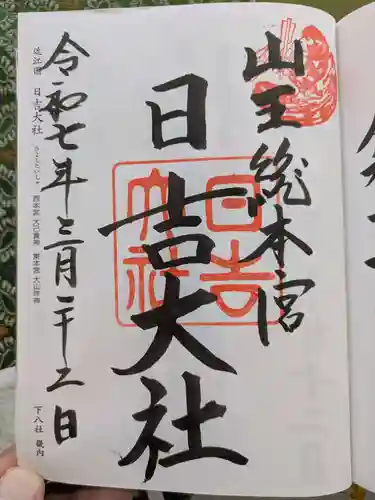 山王総本宮
日吉大社
日吉
大社
令和七年三月二十二日
近江国 日吉大社
ひよしたいしゃ
西本宮 大己貴神 東本宮 大山咋神
下八社 境内